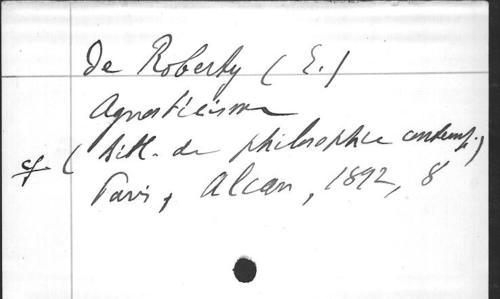 de Roberty (E.)
Agnosticisme
cf (Bibl. de philosophie contemp.)
Paris, Alcan, 1892, 8